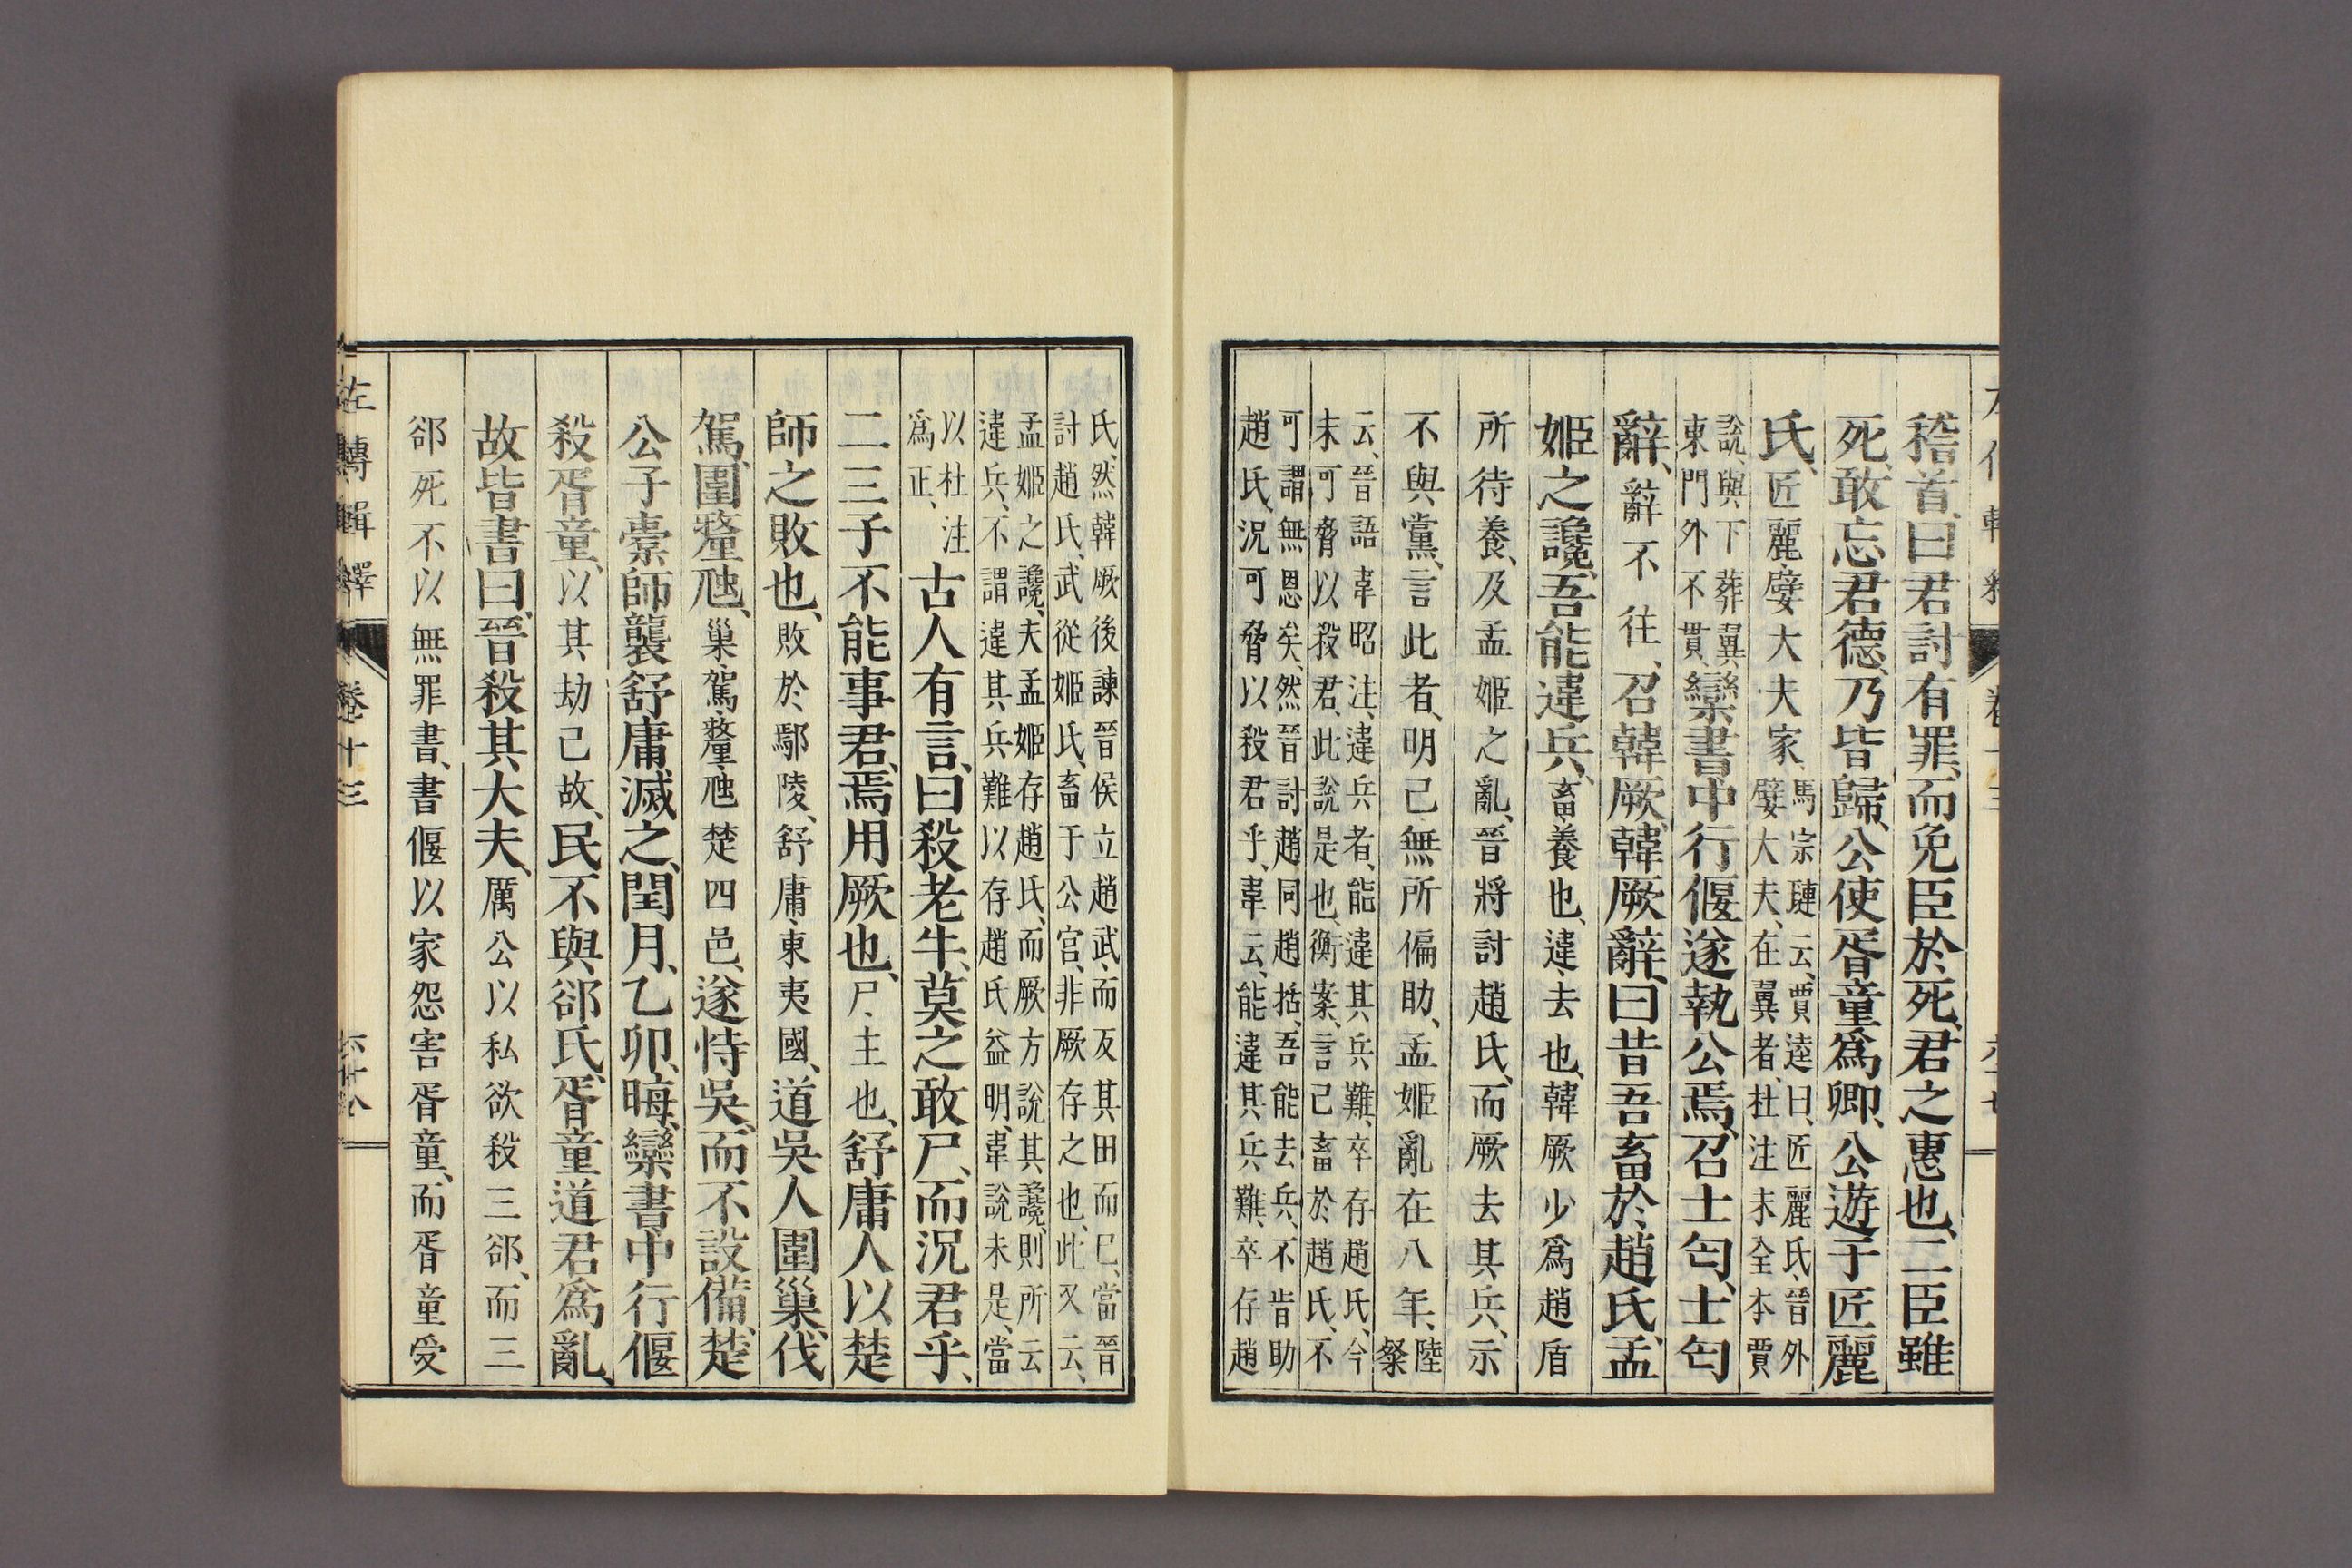 稽首、曰君討有罪、而免臣於死、君之惠也、二臣雖
死、敢忘君德、乃皆歸、公使胥童爲卿、公遊于匠麗
氏、匠麗、嬖大夫家、馬宗璉云、賈逵曰、匠麗氏、晉外
嬖大夫、在翼者、杜注未全本賈
說、與下葬翼、
東門外不貫、欒書中行偃遂執公焉、召士匄、士匄
辭、辭不往、召韓厥、韓厥辭、曰昔吾畜於趙氏、孟
姬之讒、吾能違兵、畜、養也、違、去也、韓厥少爲趙盾
所待養、及孟姬之亂、晉將討趙氏、而厥去其兵、示
不與黨、言此者、明己無所偏助、孟姬亂在八年、陸
粲
云、晉語韋昭注、違兵者、能違其兵難、卒存趙氏、今
未可脅以殺君、此說是也、衡案、言己畜於趙氏、不
可謂無恩矣、然晉討趙同趙括、吾能去兵、不肯助
趙氏、況可脅以殺君乎、韋云、能違其兵難、卒存趙
氏、然韓厥後諫晉侯立趙武、而反其田而已、當晉
討趙氏、武從姬氏、畜于公宮、非厥存之也、此又云、
孟姬之讒、夫孟姬存趙氏、而厥方說其讒、則所云
違兵、不謂違其兵難以存趙氏益明、韋說未是、當
以杜注
爲正、古人有言、曰殺老牛、莫之敢尸、而況君乎、
二三子不能事君、焉用厥也、尸、主也、舒庸人以楚
師之敗也、敗於鄢陵、舒庸、東夷國、道吳人圍巢、伐
駕、圍釐虺、巢、駕、釐、虺、楚四邑、遂恃吳、而不設備、楚
公子橐師襲舒庸、滅之、閏月、乙卯、晦、欒書中行偃
殺胥童、以其劫己故、民不與郤氏、胥童道君爲亂、
故皆書曰、晉殺其大夫、厲公以私欲殺三郤、而三
郤死不以無罪書、書偃以家怨害胥童、而胥童受
左傳輯釋 卷十三